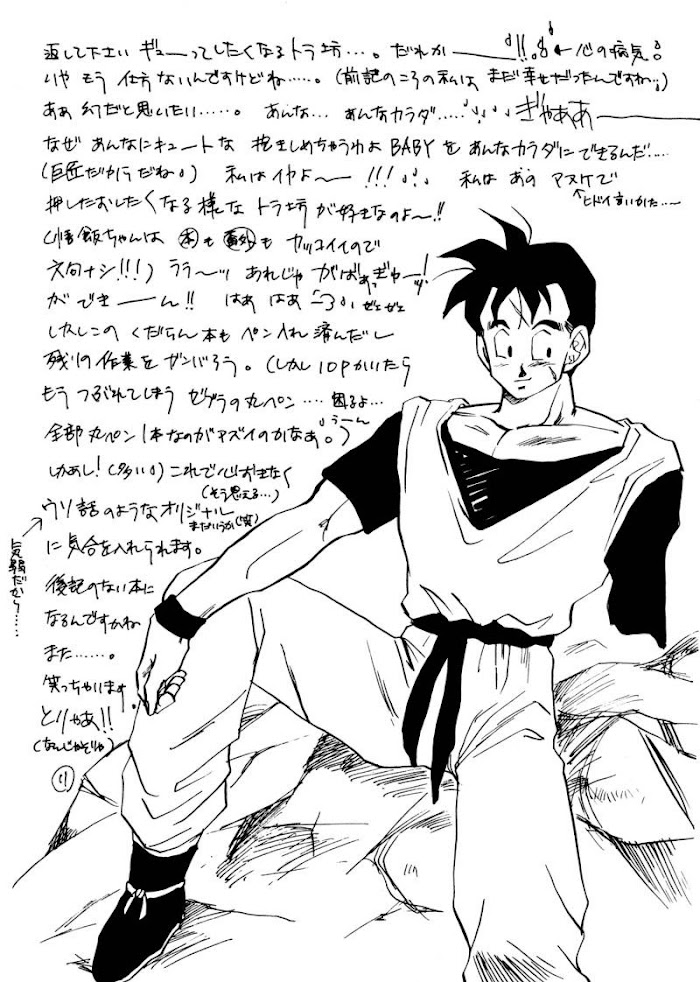 返して下さい ギューってしたくなるトラ坊…。だれか———!!。 ←心の病気。
いや もう 仕方ないんですけどね……。(前記のころの私は まだ幸せだったんですね。)
ああ 幻だと思いたい……。 あんな… あんなカラダ…… ぎゃああ———
なぜ あんなにキュートな 抱きしめちゃうわよ BABY を あんなカラダにできるんだ……
(巨匠だからだね。) 私はイヤよ〜〜!!! 私は あの アスケで
↑ヒドイ言いかた…〜
押したおしたくなる様な トラ坊が好きなのよ〜!!
(悟飯ちゃんは 本も 番外も カッコイイので
文句ナシ!!!) ララ〜ッ あれじゃ がばぁっぎゅー!ッ
ができ——ん!! はぁ はぁ ぜぇぜぇ
しかしこの くだらん本も ペン入れ 済んだし
残りの作業を ガンバろう。(しかし10Pかいたら
もう つぶれてしまう ゼブラの丸ペン…… 困るよ…
全部丸ペン1本なのがマズイのかなあ。) うーん
しかあし!(多い。) これで心おきなく
(そう思える…)
ウソ話のようなオリジナル
まだいうか(笑)
に気合を入れられます。
気弱だから……
後記のない本に
なるんですかね
また……。
笑っちゃいます。
とりゃあ!!
(なんじゃそりゃ)